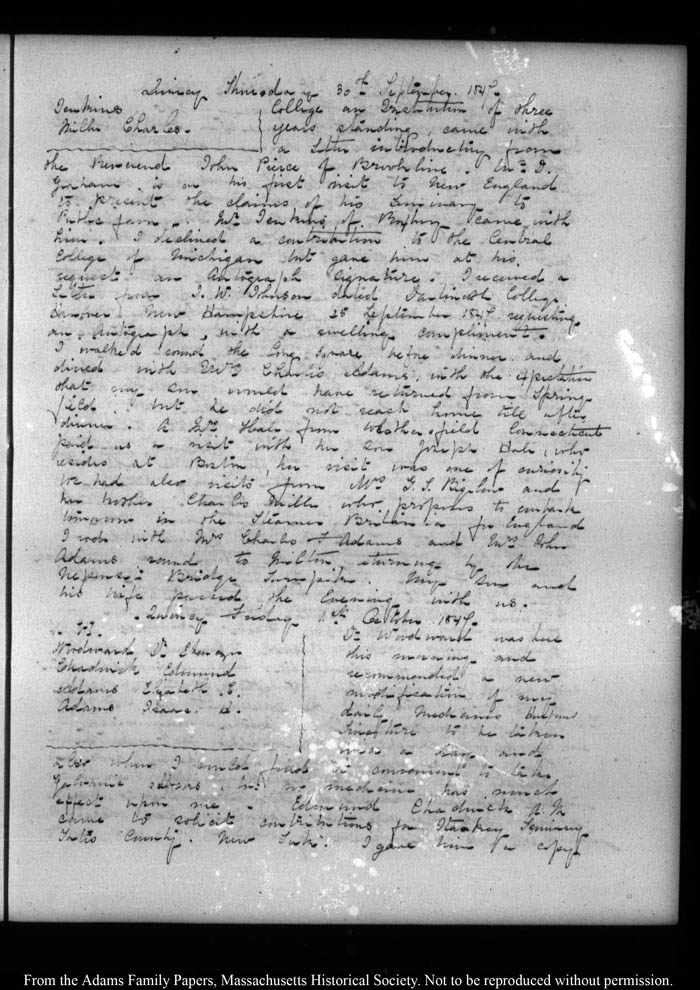 Quincy Thursday 30th September. 1847.
Jenkins
Mills Charles.
College an Institution of three
years standing, came with
a Letter introductory from
the Reverend John Pierce of Brookline. Mr. D.
Graham is on his first visit to New England
to present the claims of his Seminary to
Public favour. Mr Jenkins of Roxbury came with
him. I declined a contribution to the Central
College of Michigan but gave him at his
request an Autograph signature. I received a
Letter from J. W. Johnson dated Dartmouth College
Hanover New Hampshire 28 September 1847 requesting
an Autograph, with a swelling compliment.
I walked round the long square before dinner and
dined with Mrs Charles Adams, with the expectation
that my Son would have returned from Spring
field. but he did not reach home till after
dinner. A Mrs Hale from Wethersfield Connecticut
paid us a visit with her Son Joseph Hale, who
resides at Boston, her visit was one of curiosity
we had also visits from Mrs Bigelow and
her brother Charles Mills who proposes to embark
tomorrow in the Steamer Britannia for England
I rode with Mrs Charles F Adams and Mrs John
Adams round to Milton returning by the
Neponset Bridge Turnpike. My Son and
his wife passed the Evening with us.
Quincy Friday 1st October. 1847.
Woodward Dr. Ebenezer
Chadwick Edmund
Adams Elizabeth C.
Adams Isaac H.
Dr Woodward was here
this morning and
recommended a new
modification of my
daily Medicines
to be taken
a day and
also when I could find it convenient to take
but no medicine has much
effect upon me. Edmund Chadwick A.M
came to solicit contributions for Starkey Seminary
Yates County. New York. I gave him a copy
From the Adams Family Papers, Massachusetts Historical Society. Not to be reproduced without permission.